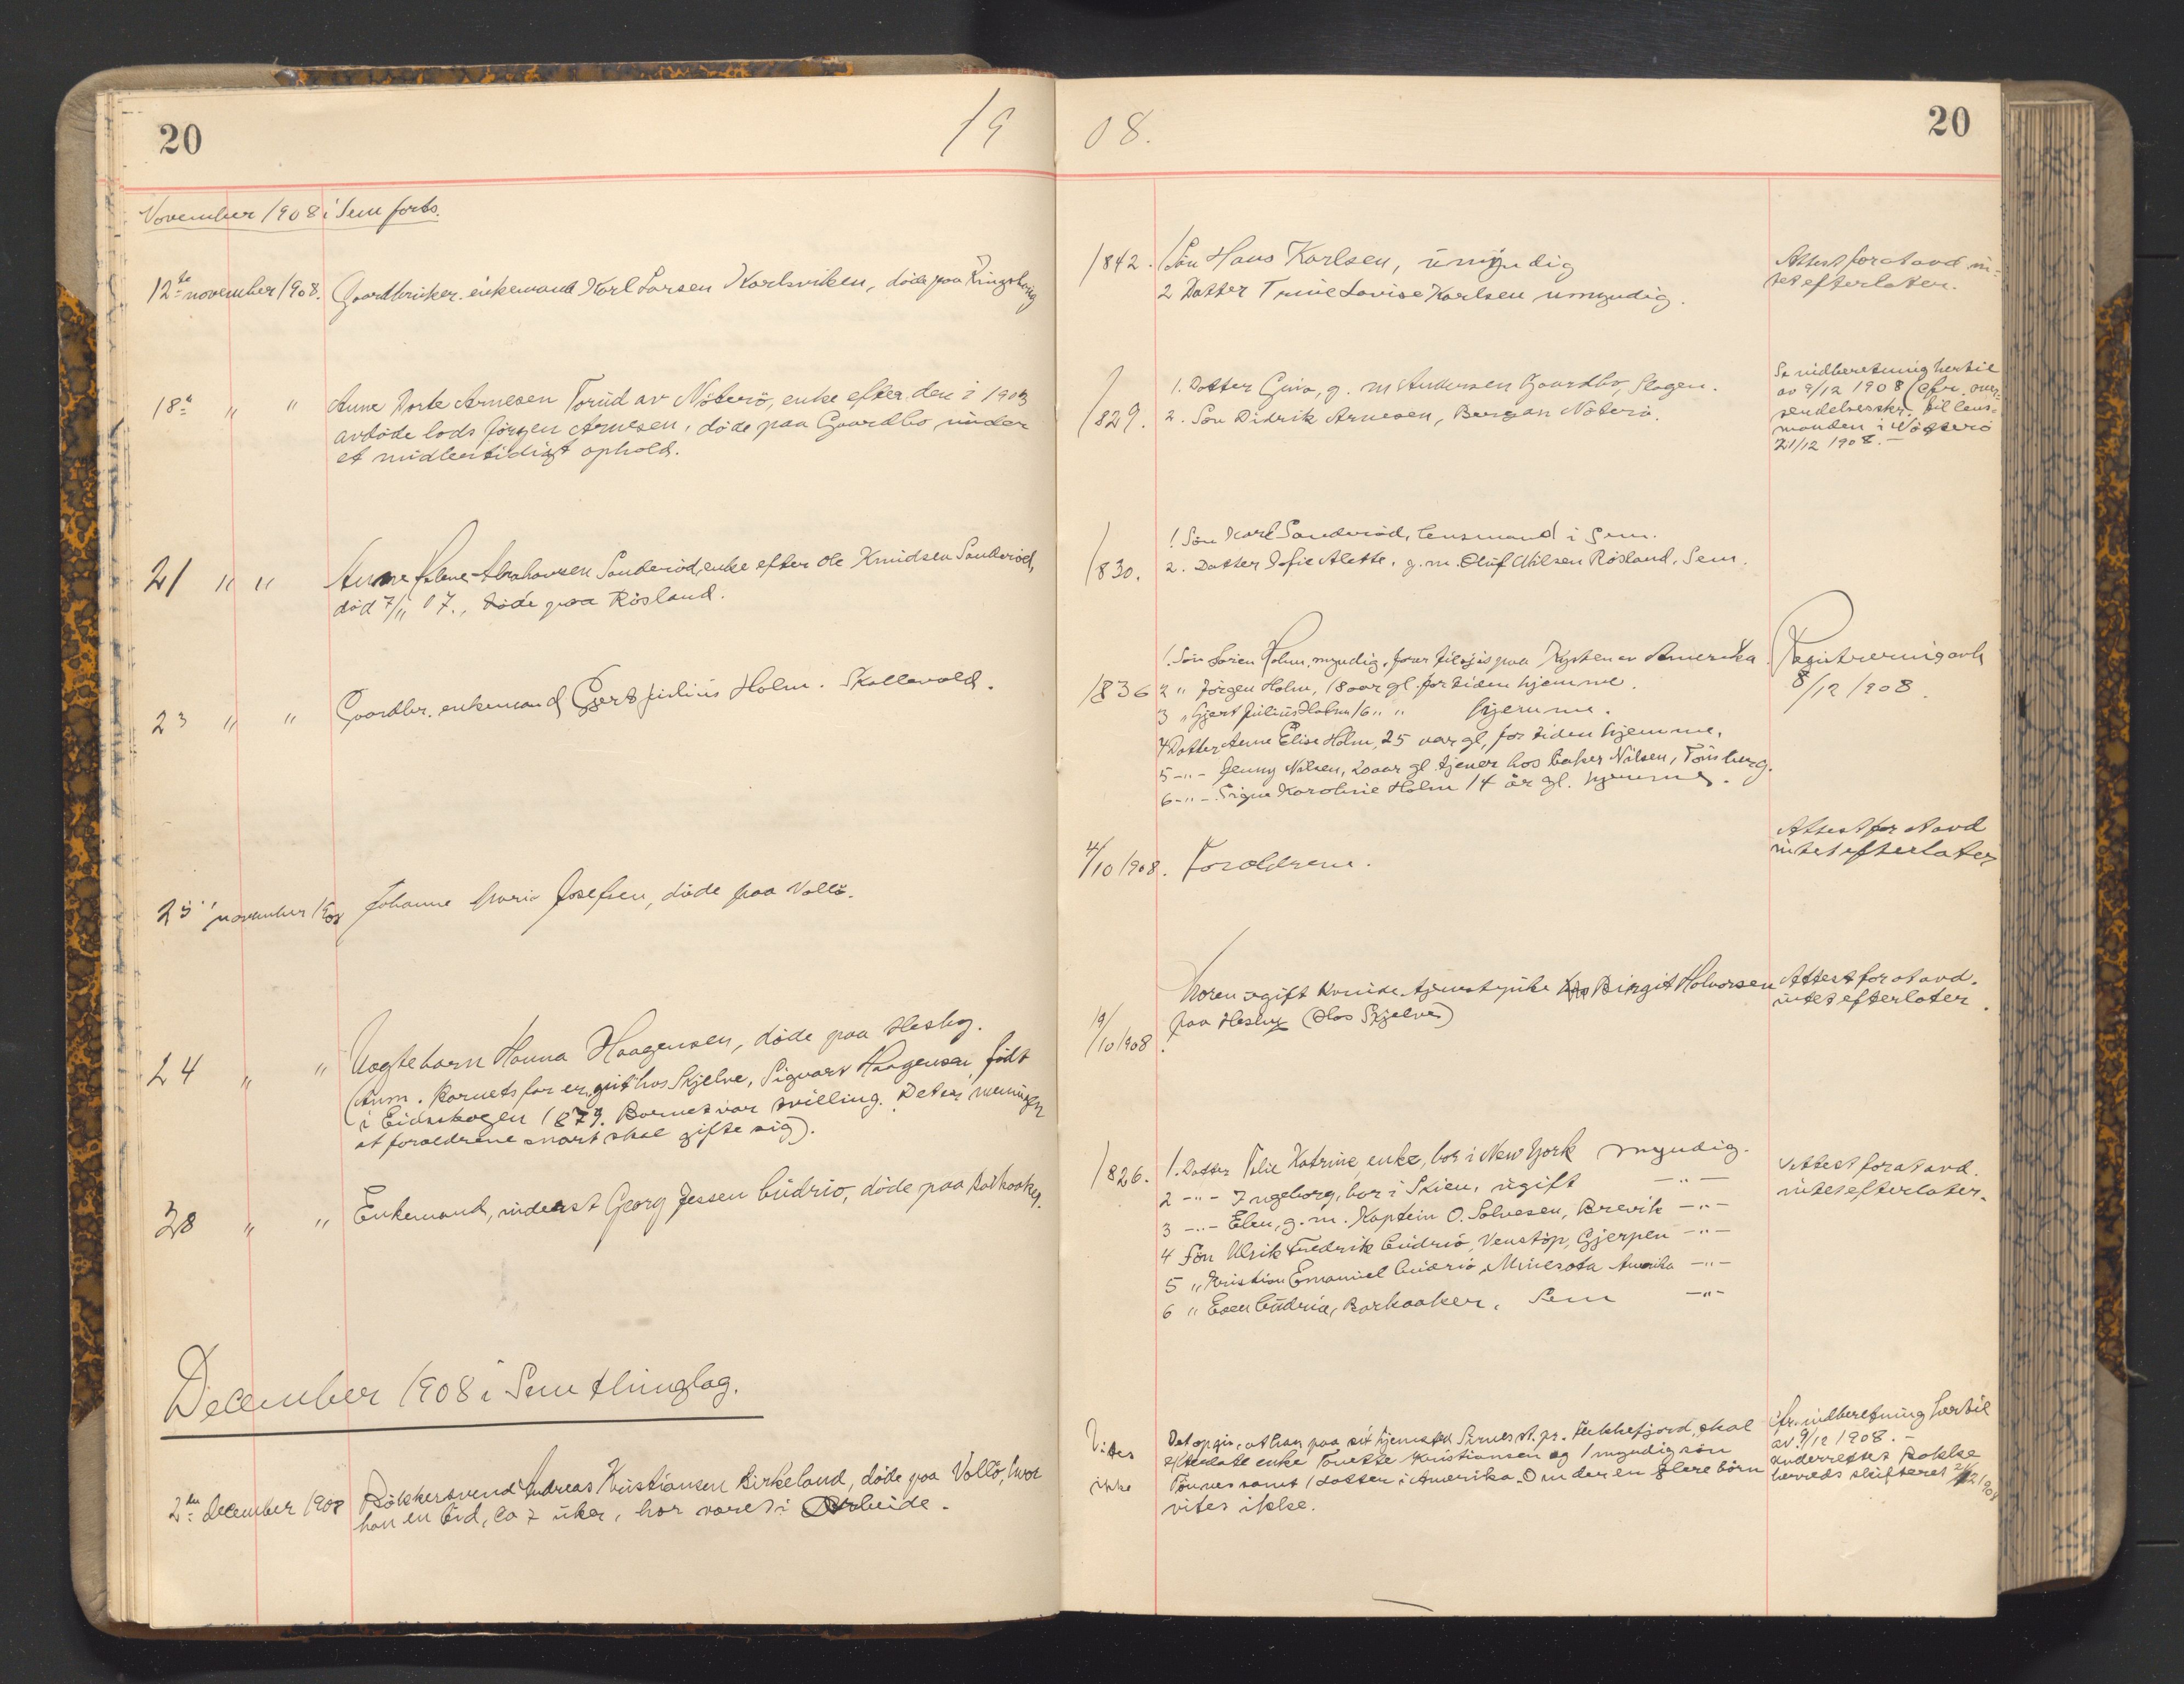 20
19
08.
20
November 1908 i Sem forts.
12te november 1908. Gaardbruker enkemand Karl Larsen Karlsviken, døde paa Ringshaug
1842. 1 Søn Hans Karlsen, umyndig
2 Datter Trine Lovise Karlsen umyndig.
Attest for at avd. in-
tet efterlater.
18de " " Anne Dorte Arnesen Torud av Nøterø, enke efter den i 1903
avdøde lods Jørgen Arnesen, døde paa Gaardbo under
et midlertidigt ophold.
1829. 1. Datter Gina, g. m Andersen Gaardbo, Slagen.
2. Søn Didrik Arnesen, Bergan Nøterø.
Se indberetning hertil
av 9/12 1908 (cfr. over-
sendelsesskr. til lens-
manden i Nøtterø
21/12 1908. -
21 " " Anne Helene Abrahamsen Sanderød, enke efter Ole Knudsen Sanderød,
død 7/11 07., døde paa Røsland.
1830. 1. Søn Karl Sanderød, lensmand i Sem.
2. Datter Sofie Alette, g. m. Oluf Nilsen Røsland, Sem.
23 " " Gaardbr. enkemand Gjert Julius Holm. Skallevold.
1836 1. Søn Søren Holm, myndig, farer tilsjøs paa Kysten av Amerika.
2 " Jørgen Holm, 18 aar gl. for tiden hjemme.
3 " Gjert Julius Holm 16 " " hjemme.
4 Datter Anne Elise Holm, 25 aar gl, for tiden hjemme.
5 -"- Jenny Nilsen, 20 aar gl. tjener hos baker Nilsen, Tønsberg.
6 -"- Signe Karoline Holm 14 år gl. hjemme.
Registrering avh
8/12 1908.
25 november 1908 Johanne Marie Josefsen, døde paa Vallø.
4/10 1908. Forældrene.
Attest for at avd
intet efterlater
24 " " Uegte barn Hanna Haagensen, døde paa Hesby.
(Anm. Barnets far er gut hos Skjelve, Sigvart Haagensen, født
i Eidskogen 1879. Barnet var tvilling. Det er meningen
at forældrene snart skal gifte sig).
19/10 1908. Moren ugift kvinde tjenestpike Birgit Halvorsen
paa Hesby (Hos Skjelve)
Attest for at avd.
intet efterlater.
28 " " Enkemand, inderst Georg Jessen Cudrio, døde paa Barkaaker.
1826. 1. Datter Tolie Katrine, enke, bor i New York myndig.
2 -"- Ingeborg, bor i Skien, ugift -"-
3 -"- Elen, g. m. Kaptein O. Solvesen, Brevik -"-
4 Søn Ulrik Fredrik Cudrio, Venstøp, Gjerpen -"-
5 " Kristian Emanuel Cudrio, Minesota Amerika -"-
6 " Even Cudrio, Barkaaker, Sem -"-
Attest for at avd.
intet efterlater.
December 1908 i Sem thinglag.
2den December 1908 Bøkkersvend Andreas Kristiansen Birkeland, døde paa Vallø, hvor
han en tid, ca 7 uker, har været i Arbeide.
Vites
ikke
Det opgis, at han paa sit hjemsted Sirnes st. pr. Fekkefjord, skal
efterlate enke Tonette Kristiansen og 1 myndig søn
Tønnes samt 1 datter i Amerika. Om der en flere børn
vites ikke.
Cfr. indberetning hertil
av 9/12 1908. -
underrettet Bakke
herreds skifteret 21/12 1908